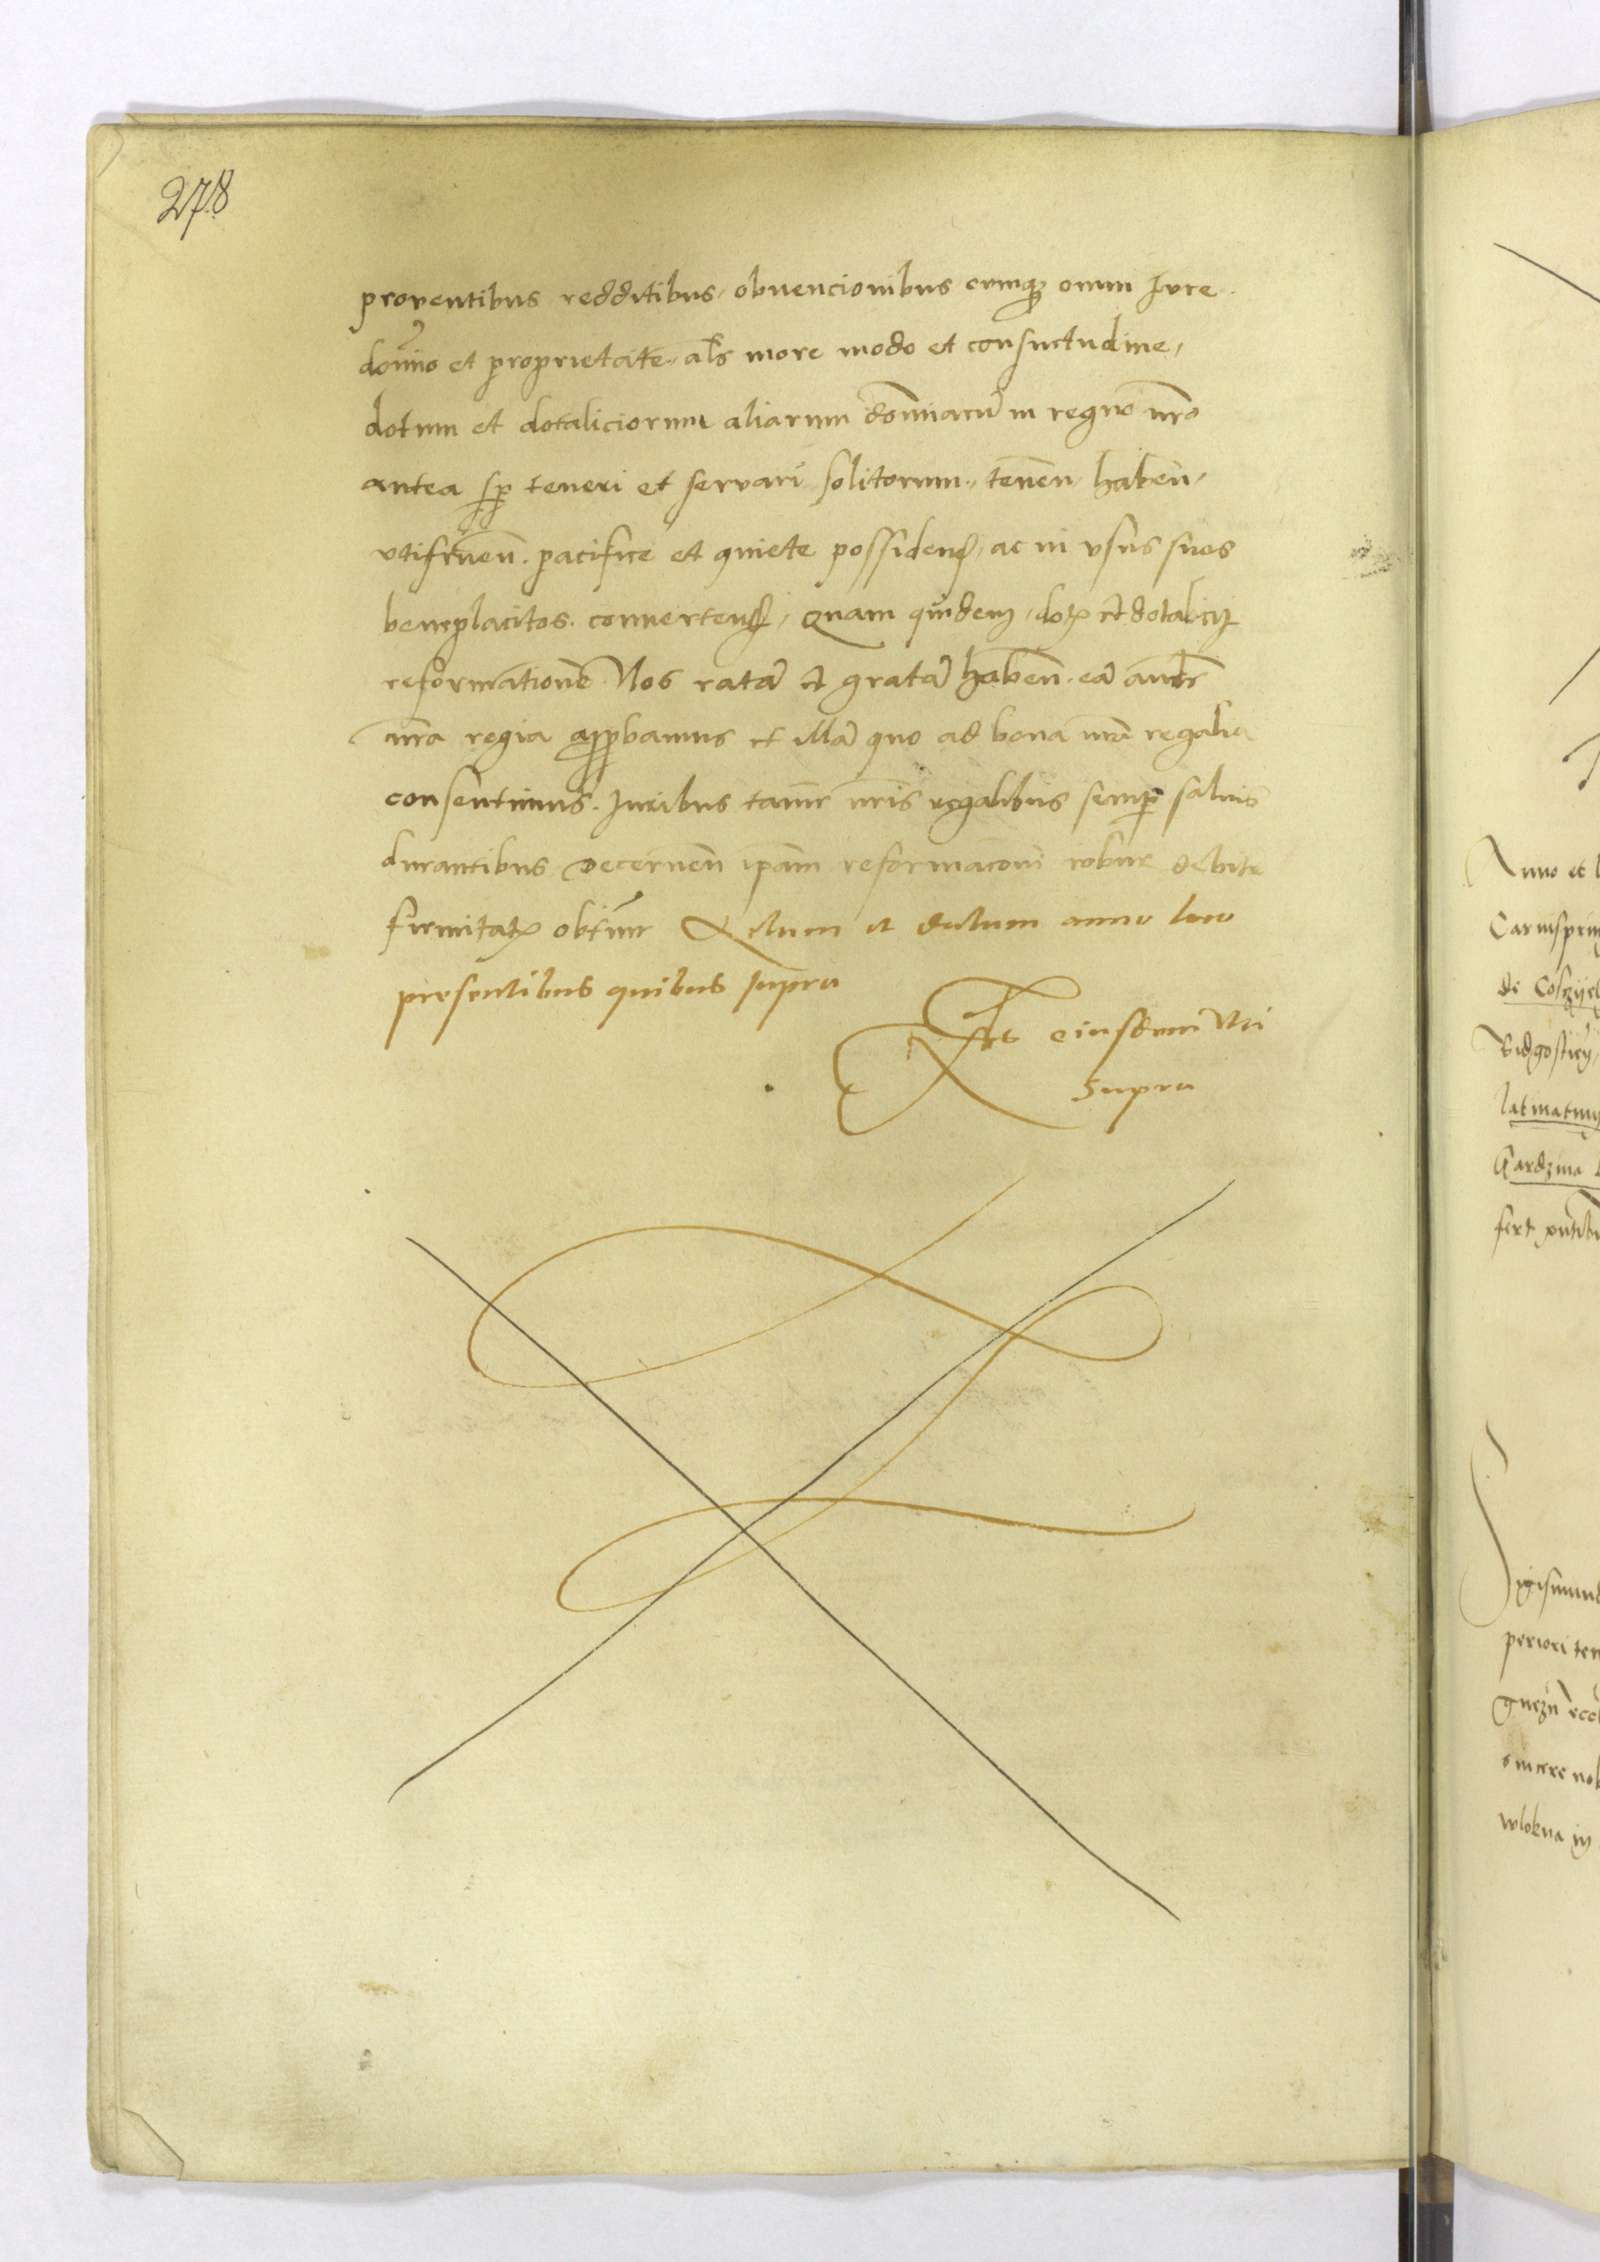 278
proventibus redditibus, obvencionibus cumq₃ omni Jure
domīo et proprietate, als more modo et consuetudine,
dotum et dotaliciorum aliarum dom̄iacū in regno nr̄o
antea sp̄ teneri et servari solitorum, tenēn, habēn,
vtifruēn. pacifice et quiete possidend, ac in vsus suos
beneplacitos convertend, Quam quidem, dotꝭ et dotalicij
reformationē Nos ratā et gratā habēn. eā auctē
nr̄a regia approbamus et illā quo ad bona nr̄a regalia
consentimus. Juribus tamē nr̄is regalibus semꝑ salvis
durantibus decernēn ip̄am reformac̄oni robur debite
firmitatꝭ obtinē Actum et datum anno loco
presentibus quibus supra
Rt̄o eiusdem vti
supra
Anno et
de Coſczyel
Bidgostiey,
Gardzina
Sigismund
periori ter
gnezn̄ eccl
sincere nob
wlokna in